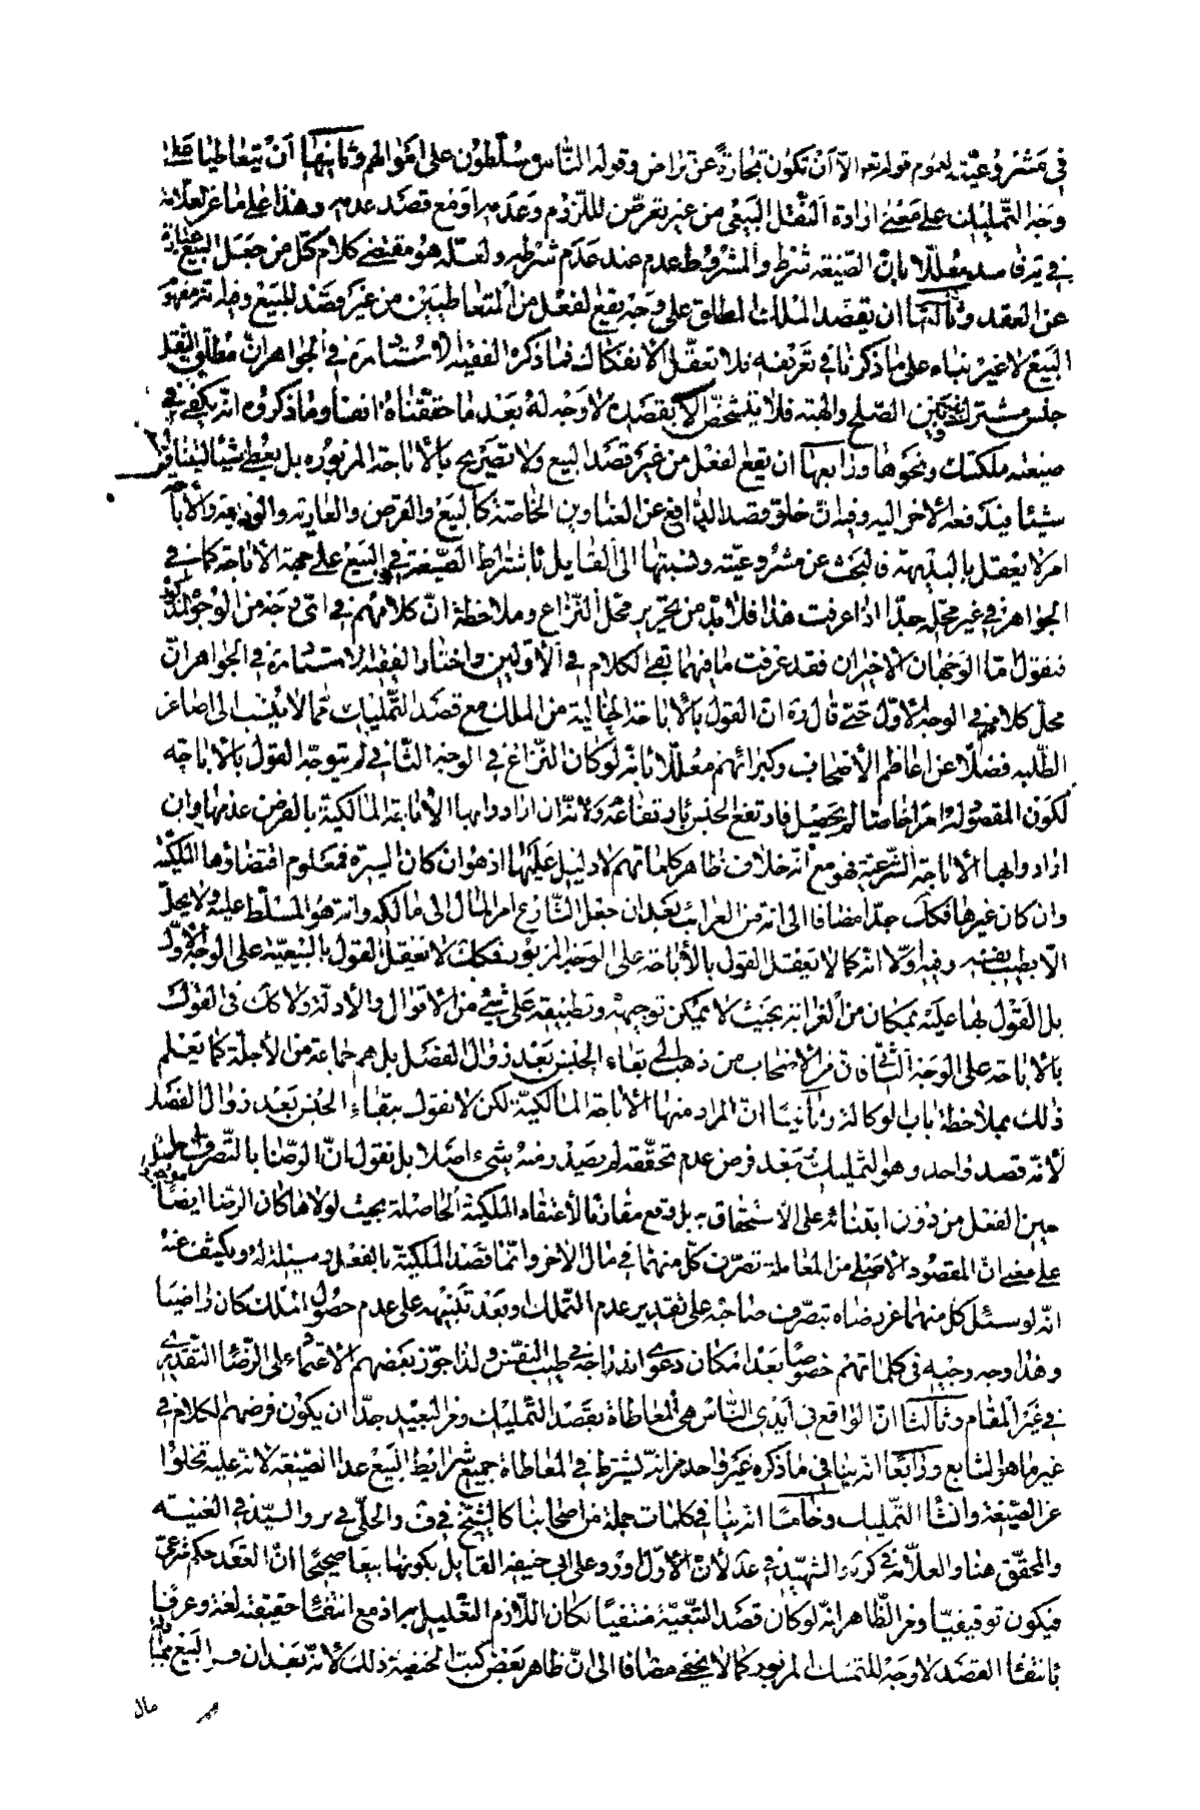 في مشروعيّته لعموم قوله تعه الّا أن تكون تجارة عن تراض وقوله الناس مسلّطون على اموالهم وثانيها أن يتعاطيا على
وجه التمليك على معنى ارادة النقل البيعي من غير تعرّض للّزوم وعدمه او مع قصد عدمه وهذا على ما عن العلّامة
في ية فاسد معلّلا بانّ الصّيغة شرط والمشروط عدم عند عدم شرطه ولعلّه هو مقتضى كلام كلّ من جعل البيع عبارة
عن العقد وثالثها ان يقصد الملك المطلق على وجه يقع الفعل من المتعاطيين من غير قصد للبيع
البيع لا غير بناء على ما ذكرنا في تعريفه فلا تعقّل الانفكاك فما ذكره الفقيه الاستاد ره في الجواهر انّ مطلق النقل
جنس مشترك بين الصّلح والهبة فلا يتشخّص الّا بقصده لا وجه له بعد ما حقّقناه انفا وما ذكروه انّه يكفي في
صيغته ملكتك ونحوها ورابعها ان يقع الفعل من غير قصد البيع ولا تصريح بالاباحة المزبورة بل يعطى شيئا ليتناول
شيئا فيدفعه الاخر اليه وفيه انّ خلوّ قصد الدّافع عن العناوين الخاصّة كالبيع والقرض والعارية والوديعة والاباحة
امر لا يعقل بالبديهة فالبحث عن مشروعيّته ونسبتها الى القايل باشتراط الصّيغة في البيع على جهة الاباحة كما في
الجواهر في غير محلّه جدّا اذا عرفت هذا فلا بدّ من تحرير محلّ النّزاع وملاحظة انّ كلامهم في اىّ وجه من الوجوه المذكورة
فنقول امّا الوجهان الاخيران فقد عرفت ما فيهما بقى الكلام في الاوّلين واختار الفقيه الاستاد ره في الجواهر انّ
محلّ كلامهم في الوجه الاوّل حتّى قال ره انّ القول بالاباحة الخالية من الملك مع قصد التّمليك ممّا لا ينسب الى اصاغر
الطّلبة فضلًا عن اعاظم الأصحاب وكبرائهم معلّلا بانّه لو كان النّزاع في الوجه الثاني لم يتوجّه القول بالاباحة
لكون المقصود له امرا خاصّا لم يحصل فارتفع الجنس بارتفاعه ولانّه ان ارادوا بها الاباحة المالكيّة بالفرض عدمها وان
ارادوا بها الاباحة الشّرعيّة فهو مع انّه خلاف ظاهر كلماتهم لا دليل عليها اذ هو ان كان السيرة فمعلوم اقتضاؤها الملكيّة
وان كان غيرها فكك جدّا مضافا الى انّه من الغرائب بعد ان جعل الشّارع امر المال الى مالكه وانّه هو المسلّط عليه ولا يحلّ
الّا بطيب نفسه وفيه اوّلا انّه كما لا يعقل القول بالاباحة على الوجه المزبور فكك لا يعقل القول بالبيعيّة على الوجه الاوّل
بل القول بها عليه بمكان من الغرابة بحيث لا يمكن توجيهه وتطبيقه على شيء من الاقوال والأدلّة ولا كك في القول
بالاباحة على الوجه الثّاني فانّ من الاصحاب من ذهب الى بقاء الجنس بعد زوال الفصل بل هم جماعة من الأجلّة كما يعلم
ذلك بملاحظة باب الوكالة وثانيًا انّ المراد منها الاباحة المالكيّة لكن لا نقول ببقاء الجنس بعد زوال الفصل
لأنّه قصد واحد وهو التمليك فبعد فرض عدم تحقّقه لم يصدر منه شيء اصلا بل نقول بانّ الرّضا بالتّصرّف حاصل
حين الفعل من دون ابتنائه على الاستحقاق بل وقع مقارنًا لاعتقاد الملكيّة الحاصلة بحيث لولاها كان الرّضا ايضًا موجودا
على معنى انّ المقصود الاصلي من المعاملة تصرّف كلّ منهما في مال الاخر وانّما قصد الملكيّة بالفعل وسيلة له ويكشف عنه
انّه لو سئل كلّ منهما عن رضاه بتصرّف صاحبه على تقدير عدم التملك وبعد تنبيهه على عدم حصول الملك كان راضيا
وهذا وجه وجيه في كلماتهم خصوصًا بعد امكان دعوى اندراجه في طيب النفس ولذا جوّز بعضهم الاعتماد على الرّضا التقديري
في غير المقام وثالثا انّ الواقع في أيدي النّاس هي المعاطاة بقصد التّمليك ومن البعيد جدّا ان يكون فرضهم الكلام في
غير ما هو الشايع ورابعًا انّه ينافي ما ذكره غير واحد من انّه يشترط في المعاطاة جميع شرايط البيع عدا الصّيغة لانّه عليه تخلوا
عن الصّيغة وانشاء التّمليك وخامسًا انّه ينافي كلمات جملة من اصحابنا كالشّيخ في ف والحلّي في ئر والسيّد في الغنية
والمحقّق هنا والعلّامة في كره والشهيد في عد لأنّ الأوّل ورد على ابي حنيفة القايل بكونها بيعا صحيحًا انّ العقد حكم شرعيّ
فيكون توقيفيّا ومن الظّاهر انّه لو كان قصد البيعيّة منتفيًا لكان اللّازم التّعليل به اذ مع انتفاء حقيقته لغة وعرفًا
بانتفاء القصد لا وجه للتمسك المزبور كما لا يخفى مضافا الى انّ ظاهر بعض كتب الحنفيّة ذلك لانّه بعد ان فسر البيع
مال